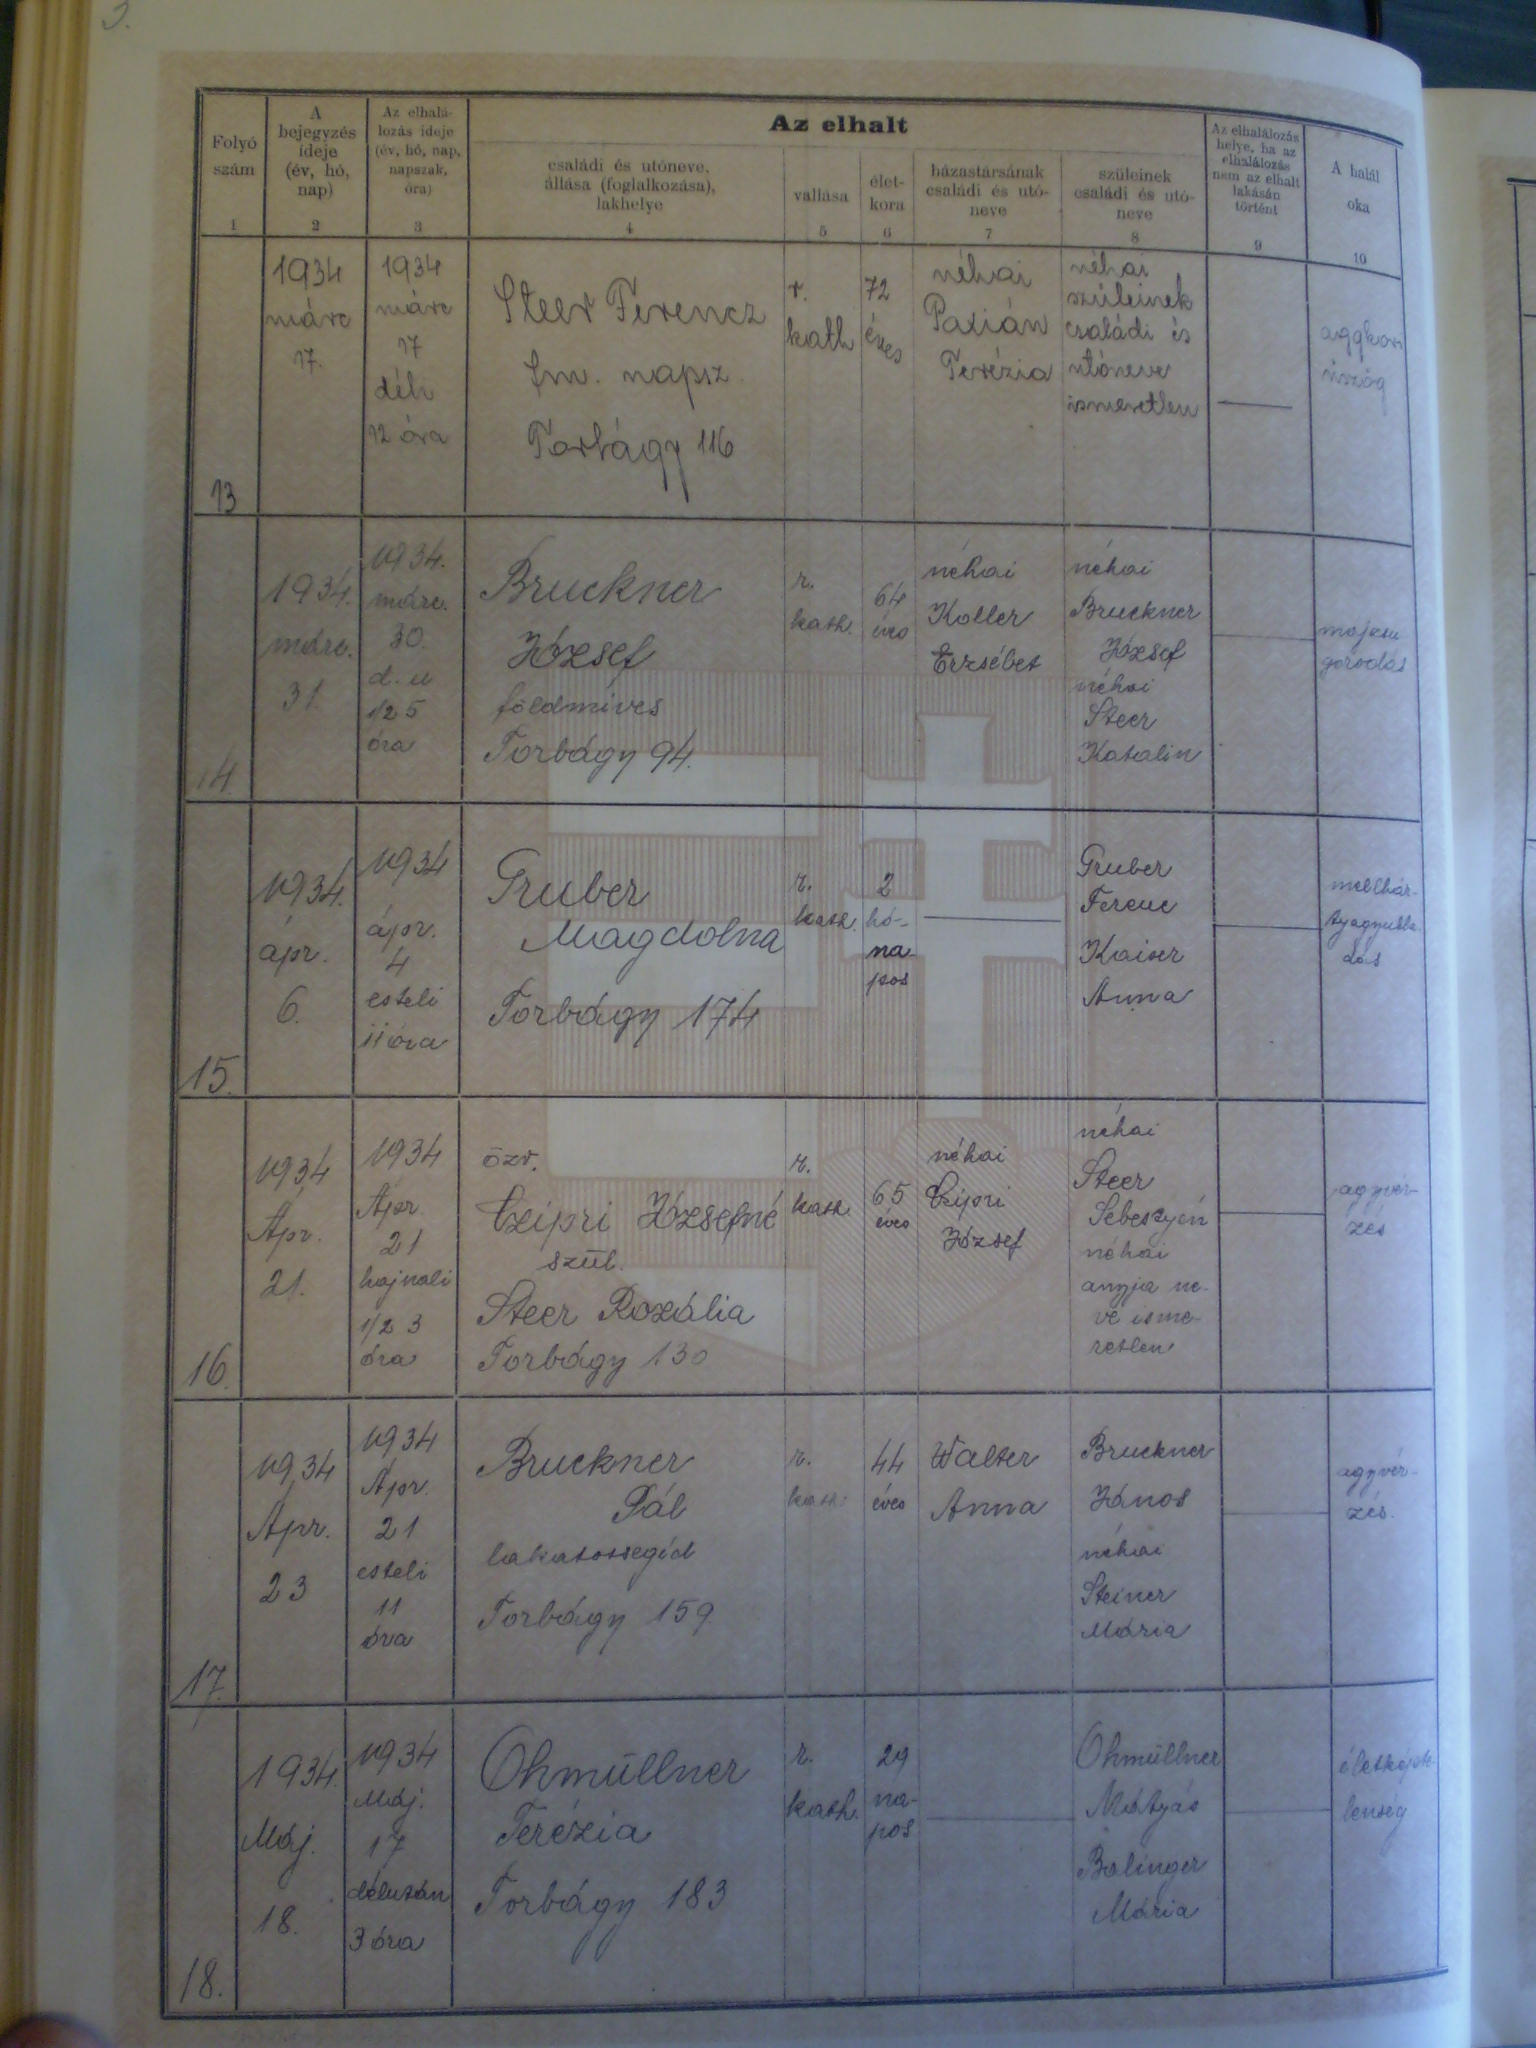 3.
Folyó
szám
1
A
bejegyzés
ideje
(év, hó,
nap)
2
Az elhalá-
lozás ideje
(év, hó, nap,
napszak,
óra)
3
Az elhalt
családi és utóneve,
állása (foglalkozása),
lakhelye
4
vallása
5
élet-
kora
6
házastársának
családi és utó-
neve
7
szüleinek
családi és utó-
neve
8
Az elhalálozás
helye, ha az
elhalálozás
nem az elhalt
lakásán
történt
9
A halál
oka
10
13
1934
márc
17.
1934
márc
17
déli
12 óra
Steer Ferencz
fm. napsz.
Torbágy 116
r.
kath
72
éves
néhai
Paxián
Terézia
néhai
szüleinek
családi és
utóneve
ismeretlen
aggkori
14.
1934.
márc.
31.
1934.
márc.
30.
d. u
1/2 5
óra
Bruckner
József
földmíves
Torbágy 94.
r.
kath.
64
éves
néhai
Koller
Erzsébet
néhai
Bruckner
József
néhai
Steer
Katalin
15.
1934.
ápr.
6.
1934
ápr.
4
esteli
11 óra
Gruber
Magdolna
Torbágy 174
r.
kath.
2
hó-
na-
pos
Gruber
Ferenc
Kaiser
Anna
mellhár-
tyagyulla-
dás
16.
1934
Ápr.
21.
1934
Ápr.
21
hajnali
1/2 3
óra
özv.
Czipri Józsefné
szül.
Steer Rozália
Torbágy 130
r.
kath.
65
éves
néhai
Czipri
József
néhai
Steer
Sebestyén
néhai
anyja ne-
ve isme-
retlen
agyvér-
zés
17.
1934
Ápr.
23
1934
Ápr.
21
esteli
11
óra
Bruckner
Pál
lakatossegéd
Torbágy 159.
r.
kath.
44
éves
Walter
Anna
Bruckner
János
néhai
Steiner
Mária
agyvér-
zés.
18.
1934.
Máj.
18.
1934
Máj.
17
délután
3 óra
Ohmüllner
Terézia
Torbágy 183
r.
kath.
29
na-
pos
Ohmüllner
Mátyás
Balinger
Mária
életképte-
lenség